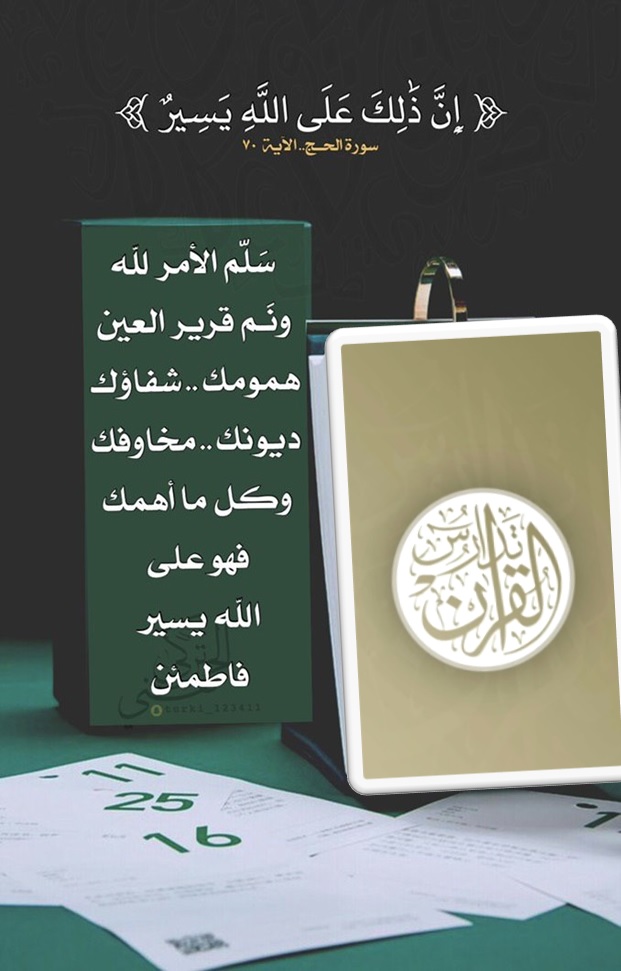 ﴿ إِنَّ ذَٰلِكَ عَلَى اللَّهِ يَسِيرٌ ﴾
سورة الحج..الآية ٧٠
سَلّم الأمر لله
ونَم قرير العين
همومك..شفاؤك
ديونك..مخاوفك
وكل ما أهمك
فهو على
الله يسير
فاطمئن
@turki_123411
تدارس
القرآن
11
25
16